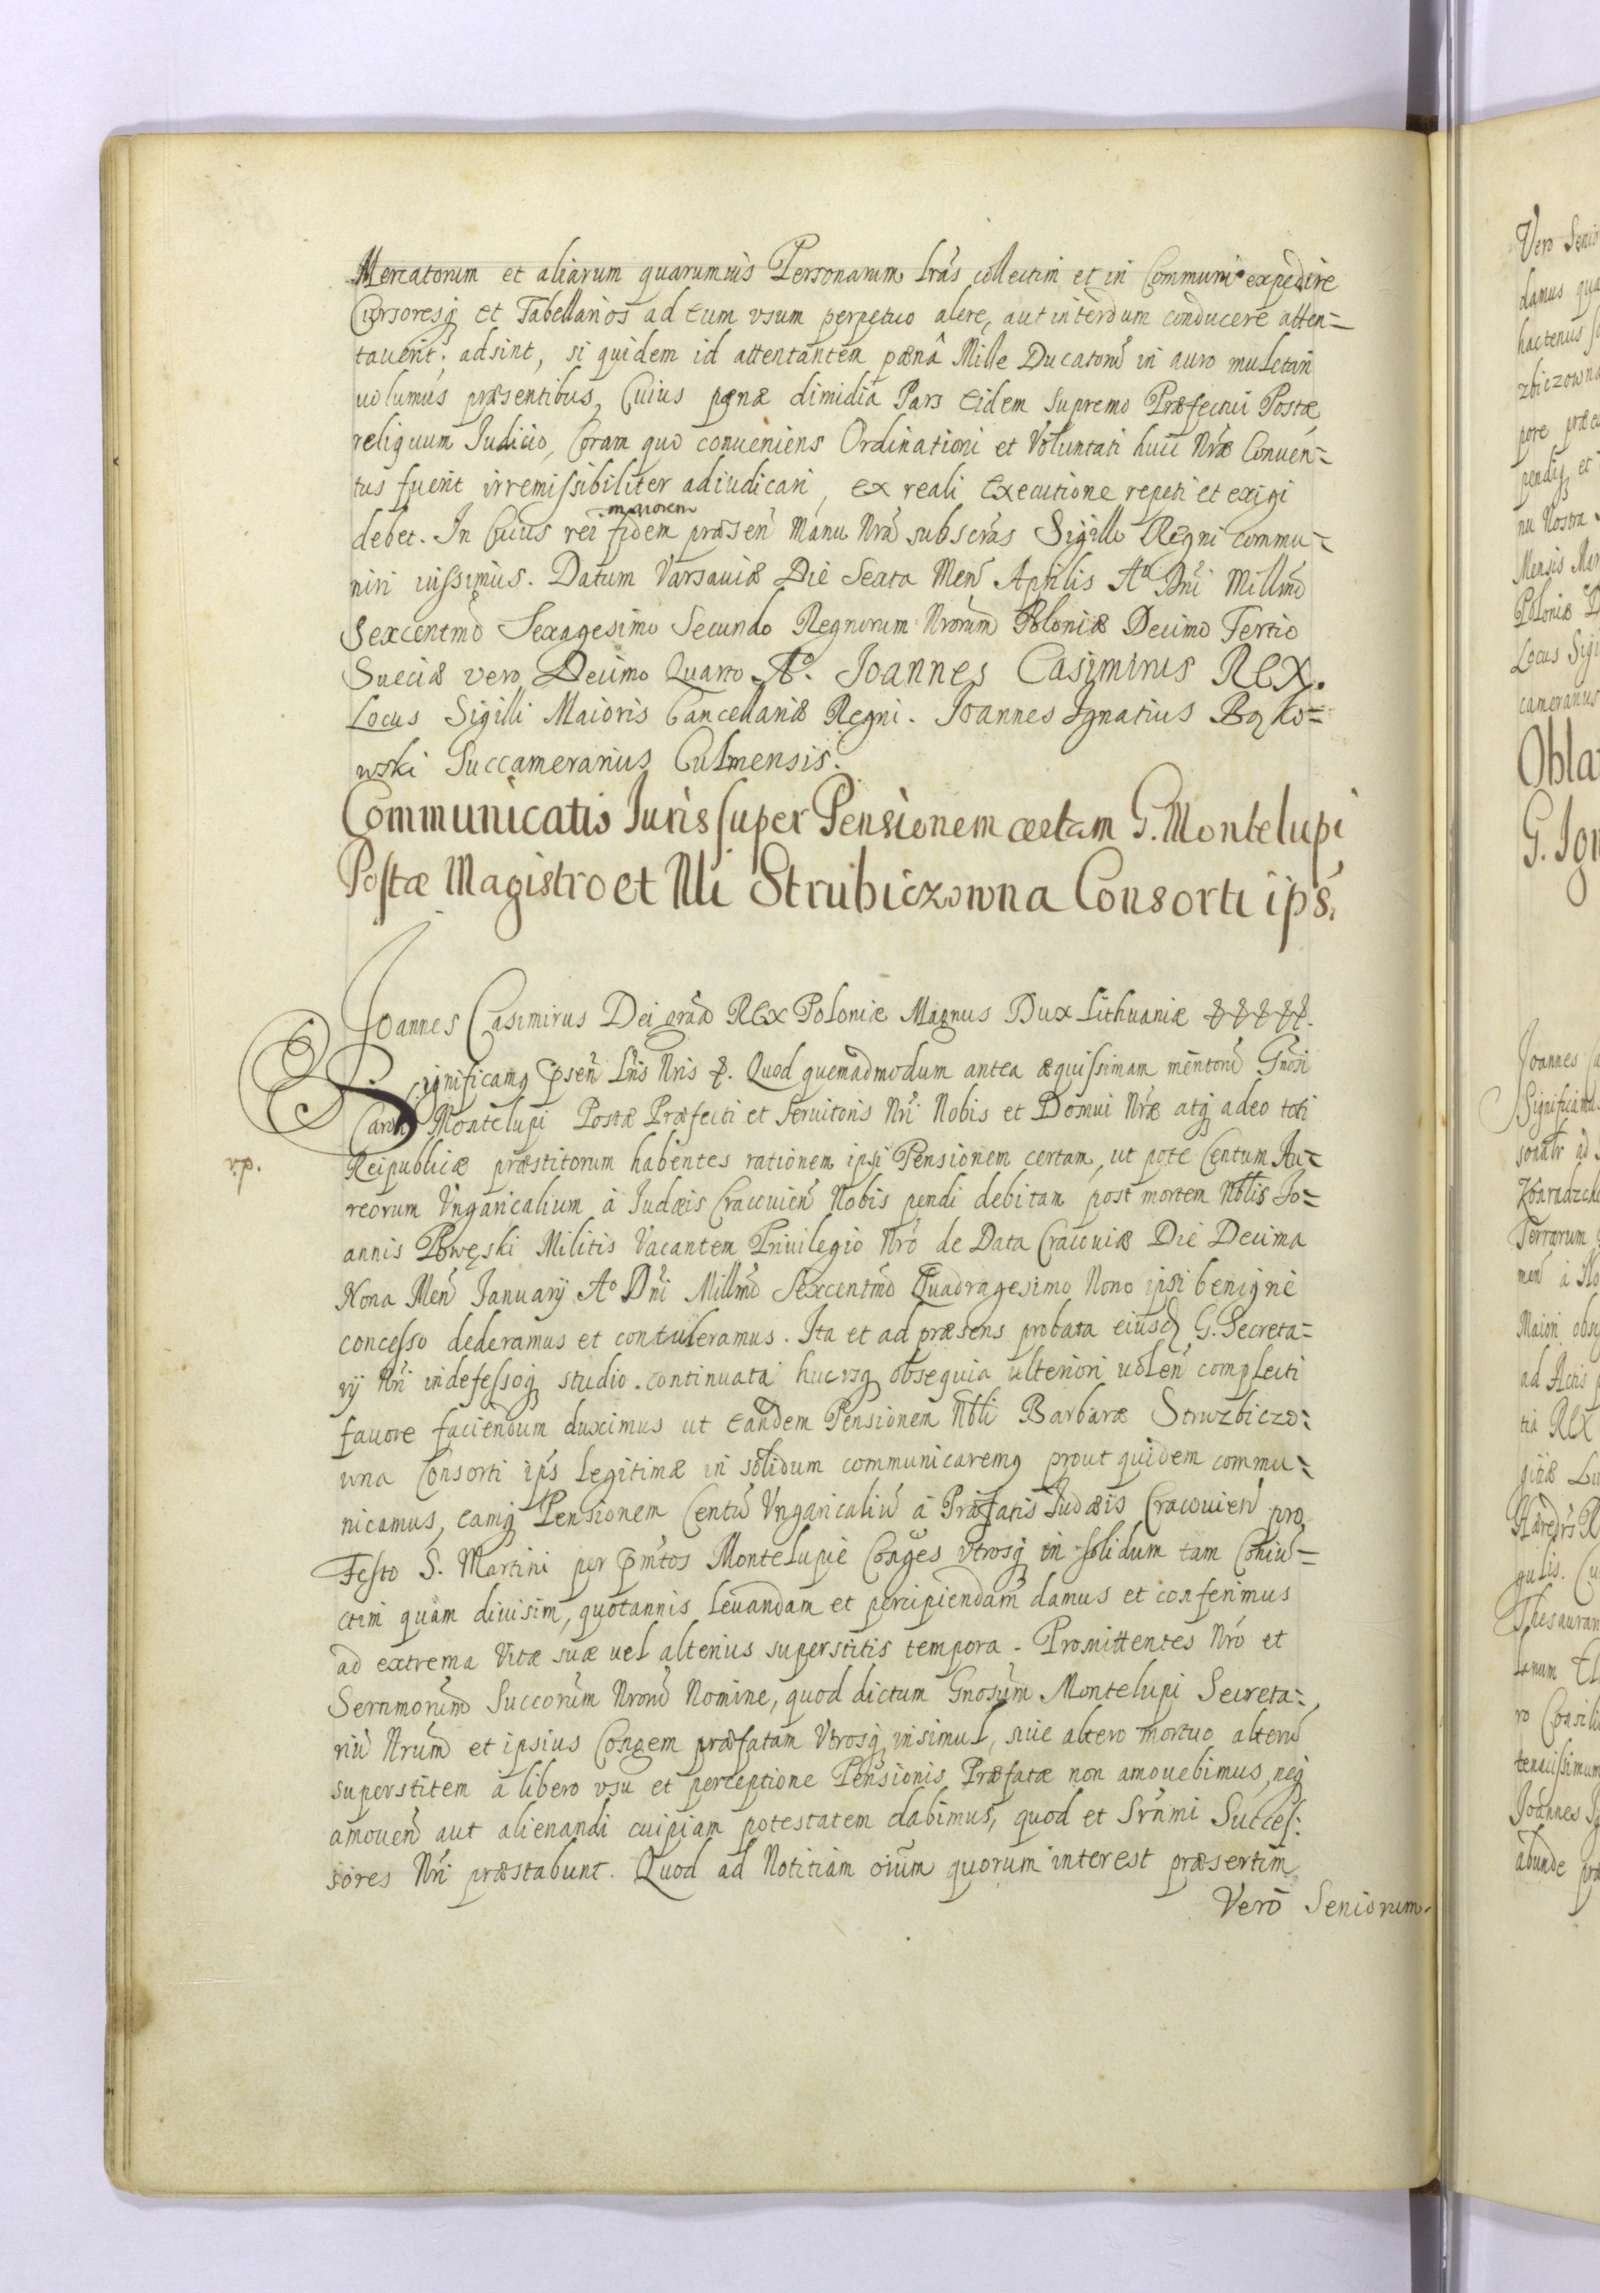 Mercatorum et aliarum quarumuis Personarum Lrãs collectim et in Communi expedire
Cursoresq et Tabellarios ad eum vsum perpetuo alere, aut interdum conducere atten=
tauerit, adsint, si quidem id attentantem pænâ Mille Ducatorũ in auro mulctari
uolumus præsentibus, Cuius pænæ dimidia Pars eidem Supremo Præfectui Postæ,
reliquum Iudicio, Coram quo conueniens Ordinationi et Voluntati huic Nræ Conuen=
tus fuerit irremissibiliter adiudicari, ex reali Executione repeti et exigi
debet. In Cuius rei maiorem fidem præsen̄ Manu Nrã subscrãs Sigillo Regni commu=
niri iussimus. Datum Varsauiæ Die Sexta Men̄ Aprilis Aº Dn̄i Millmõ
Sexcentmõ Sexagesimo Secundo Regnorum Nrorũm Poloniæ Decimo Tertio
Sueciæ vero Decimo Quarto Aº. Joannes Casimirus REX.
Locus Sigilli Maioris Cancellariæ Regni. Joannes Ignatius Bąko=
wski Succamerarius Culmensis.
Communicatio Juris super Pensionem certam G. Montelupi
Postæ Magistro et Nli Strubiczowna Consorti ips̄.
Joannes Casimirus Dei grãa REX Poloniæ Magnus Dux Lithuaniæ &&&&&.
Significamq p̄sen̄ Lris Nris &. Quod quemadmodum antea æquissimam meritorũ Gnosi
Caroli Montelupi Postæ Præfecti et Seruitoris Nri Nobis et Domui Nræ atq adeo toti
v.p.
Reipublicæ præstitorum habentes rationem ipsi Pensionem certam, ut pote Centum Au=
reorum Vngaricalium à Iudæis Cracouien̄ Nobis pendi debitam post mortem Nblis Jo=
annis Powęski Militis Vacantem Priuilegio Nrõ de Data Cracouiæ Die Decima
Nona Men̄ January Aº Dn̄i Millmõ Sexcentmõ Quadragesimo Nono ipsi benigne
concesso dederamus et contuleramus. Ita et ad præsens probata eiusd G. Secreta=
rij Nri indefessoq studio continuata hucusq obsequia ulteriori uolen̄ complecti
fauore faciendum duximus ut eandem Pensionem Nbli Barbaræ Struzbiczo=
wna Consorti ips̄ Legitimæ in solidum communicaremq prout quidem commu=
nicamus, eamq Pensionem Centũ Vngaricaliũ à Præfatis Iudæis Cracouien̄ pro
Festo S. Martini per p̄mtos Montelupie Conges̄ vtrosq in solidum tam Coniu=
ctim quàm diuisim, quotannis leuandam et percipiendam damus et conferimus
ad extrema Vitæ suæ uel alterius superstitis tempora. Promittentes Nrõ et
Sernmorũm Succorũm Nrorũ Nomine, quod dictum Gnosũm Montelupi Secreta=
riũ Nrũm et ipsius Congem præfatam Vtrosq insimul, siue altero mortuo alterũ
superstitem à libero vsu et perceptione Pensionis Præfatæ non amouebimus, neq
amouen̄ aut alienandi cuipiam potestatem dabimus, quod et Srn̄mi Succes:
sores Nri præstabunt. Quod ad Notitiam oiũm quorum interest præsertim
Verò Seniorum.